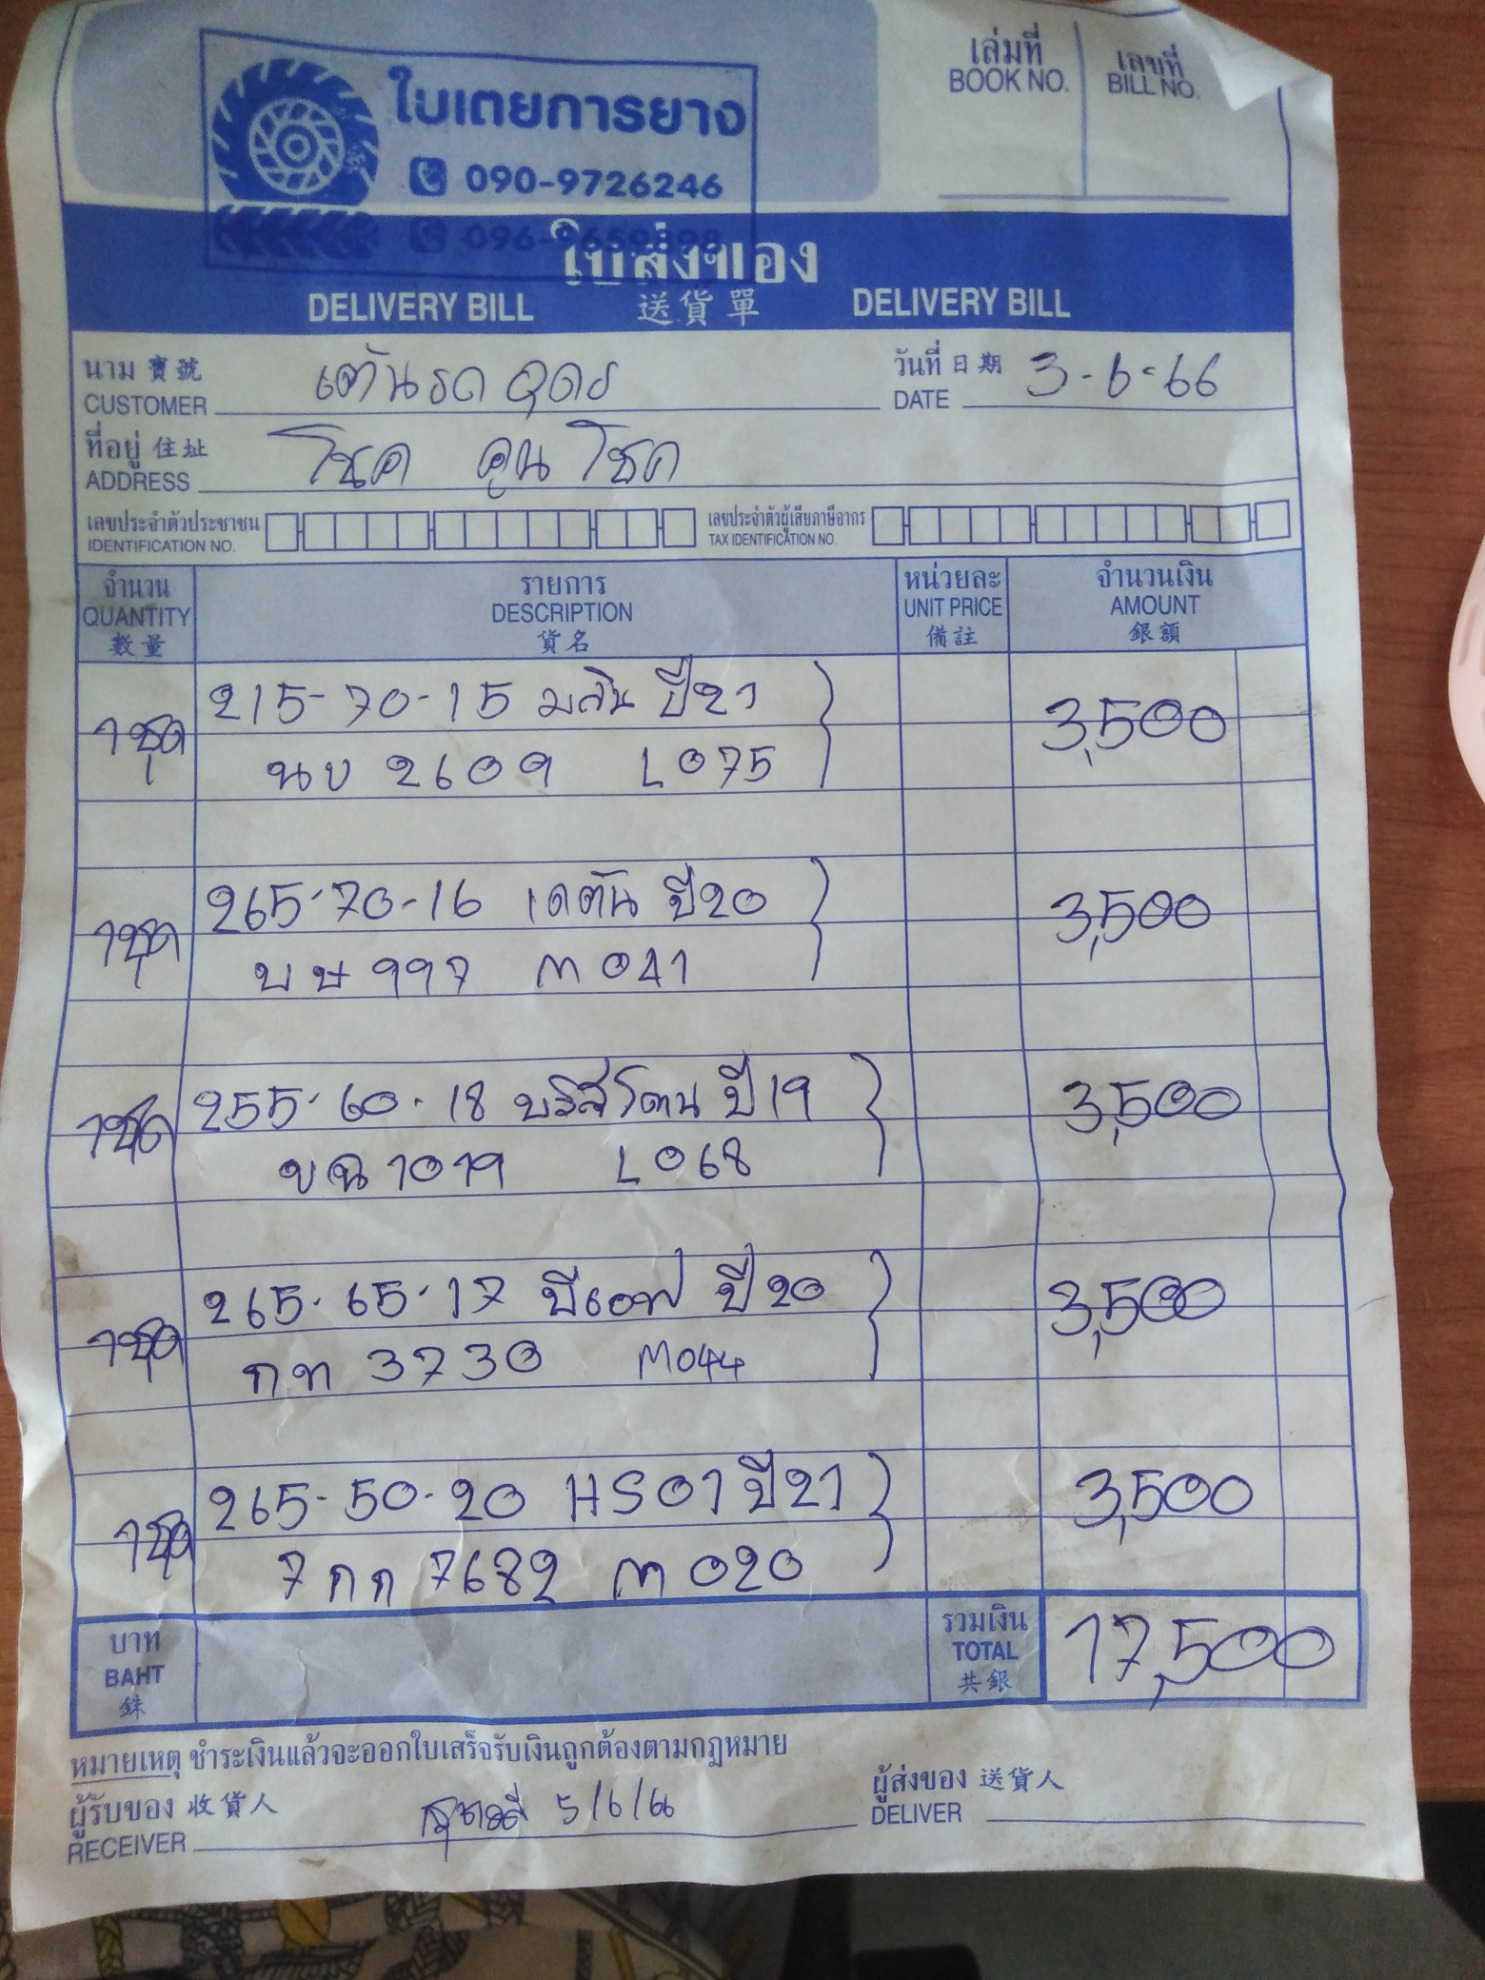 ใบเตยการยาง
090-9726246
เล่มที่
BOOK NO.
เลขที่
BILL NO.
ใบส่งของ
DELIVERY BILL 送貨單 DELIVERY BILL
นาม 寶號
CUSTOMER เต้นรถ อุดร
วันที่ 日期
DATE 3-6-66
ที่อยู่ 住址
ADDRESS โชค คูน โชค
เลขประจำตัวประชาชน
IDENTIFICATION NO.
เลขประจำตัวผู้เสียภาษีอากร
TAX IDENTIFICATION NO.
จำนวน
QUANTITY
數量
รายการ
DESCRIPTION
貨名
หน่วยละ
UNIT PRICE
備註
จำนวนเงิน
AMOUNT
銀額
1ชุด 215-70-15 มสิน ปี21 3,500
นข 2609 L075
1ชุด 265-70-16 เดตัน ปี20 3,500
บษ 997 M041
1ชุด 255-60-18 บริสโตน ปี19 3,500
ขฉ 1019 L068
1ชุด 265-65-17 บีเอฟ ปี20 3,500
กท 3730 M044
1ชุด 265-50-20 HS01 ปี21 3,500
7กก 7682 M020
บาท
BAHT
銖
รวมเงิน
TOTAL
共銀
17,500
หมายเหตุ ชำระเงินแล้วจะออกใบเสร็จรับเงินถูกต้องตามกฎหมาย
ผู้รับของ 收貨人
RECEIVER 5/6/66
ผู้ส่งของ 送貨人
DELIVER